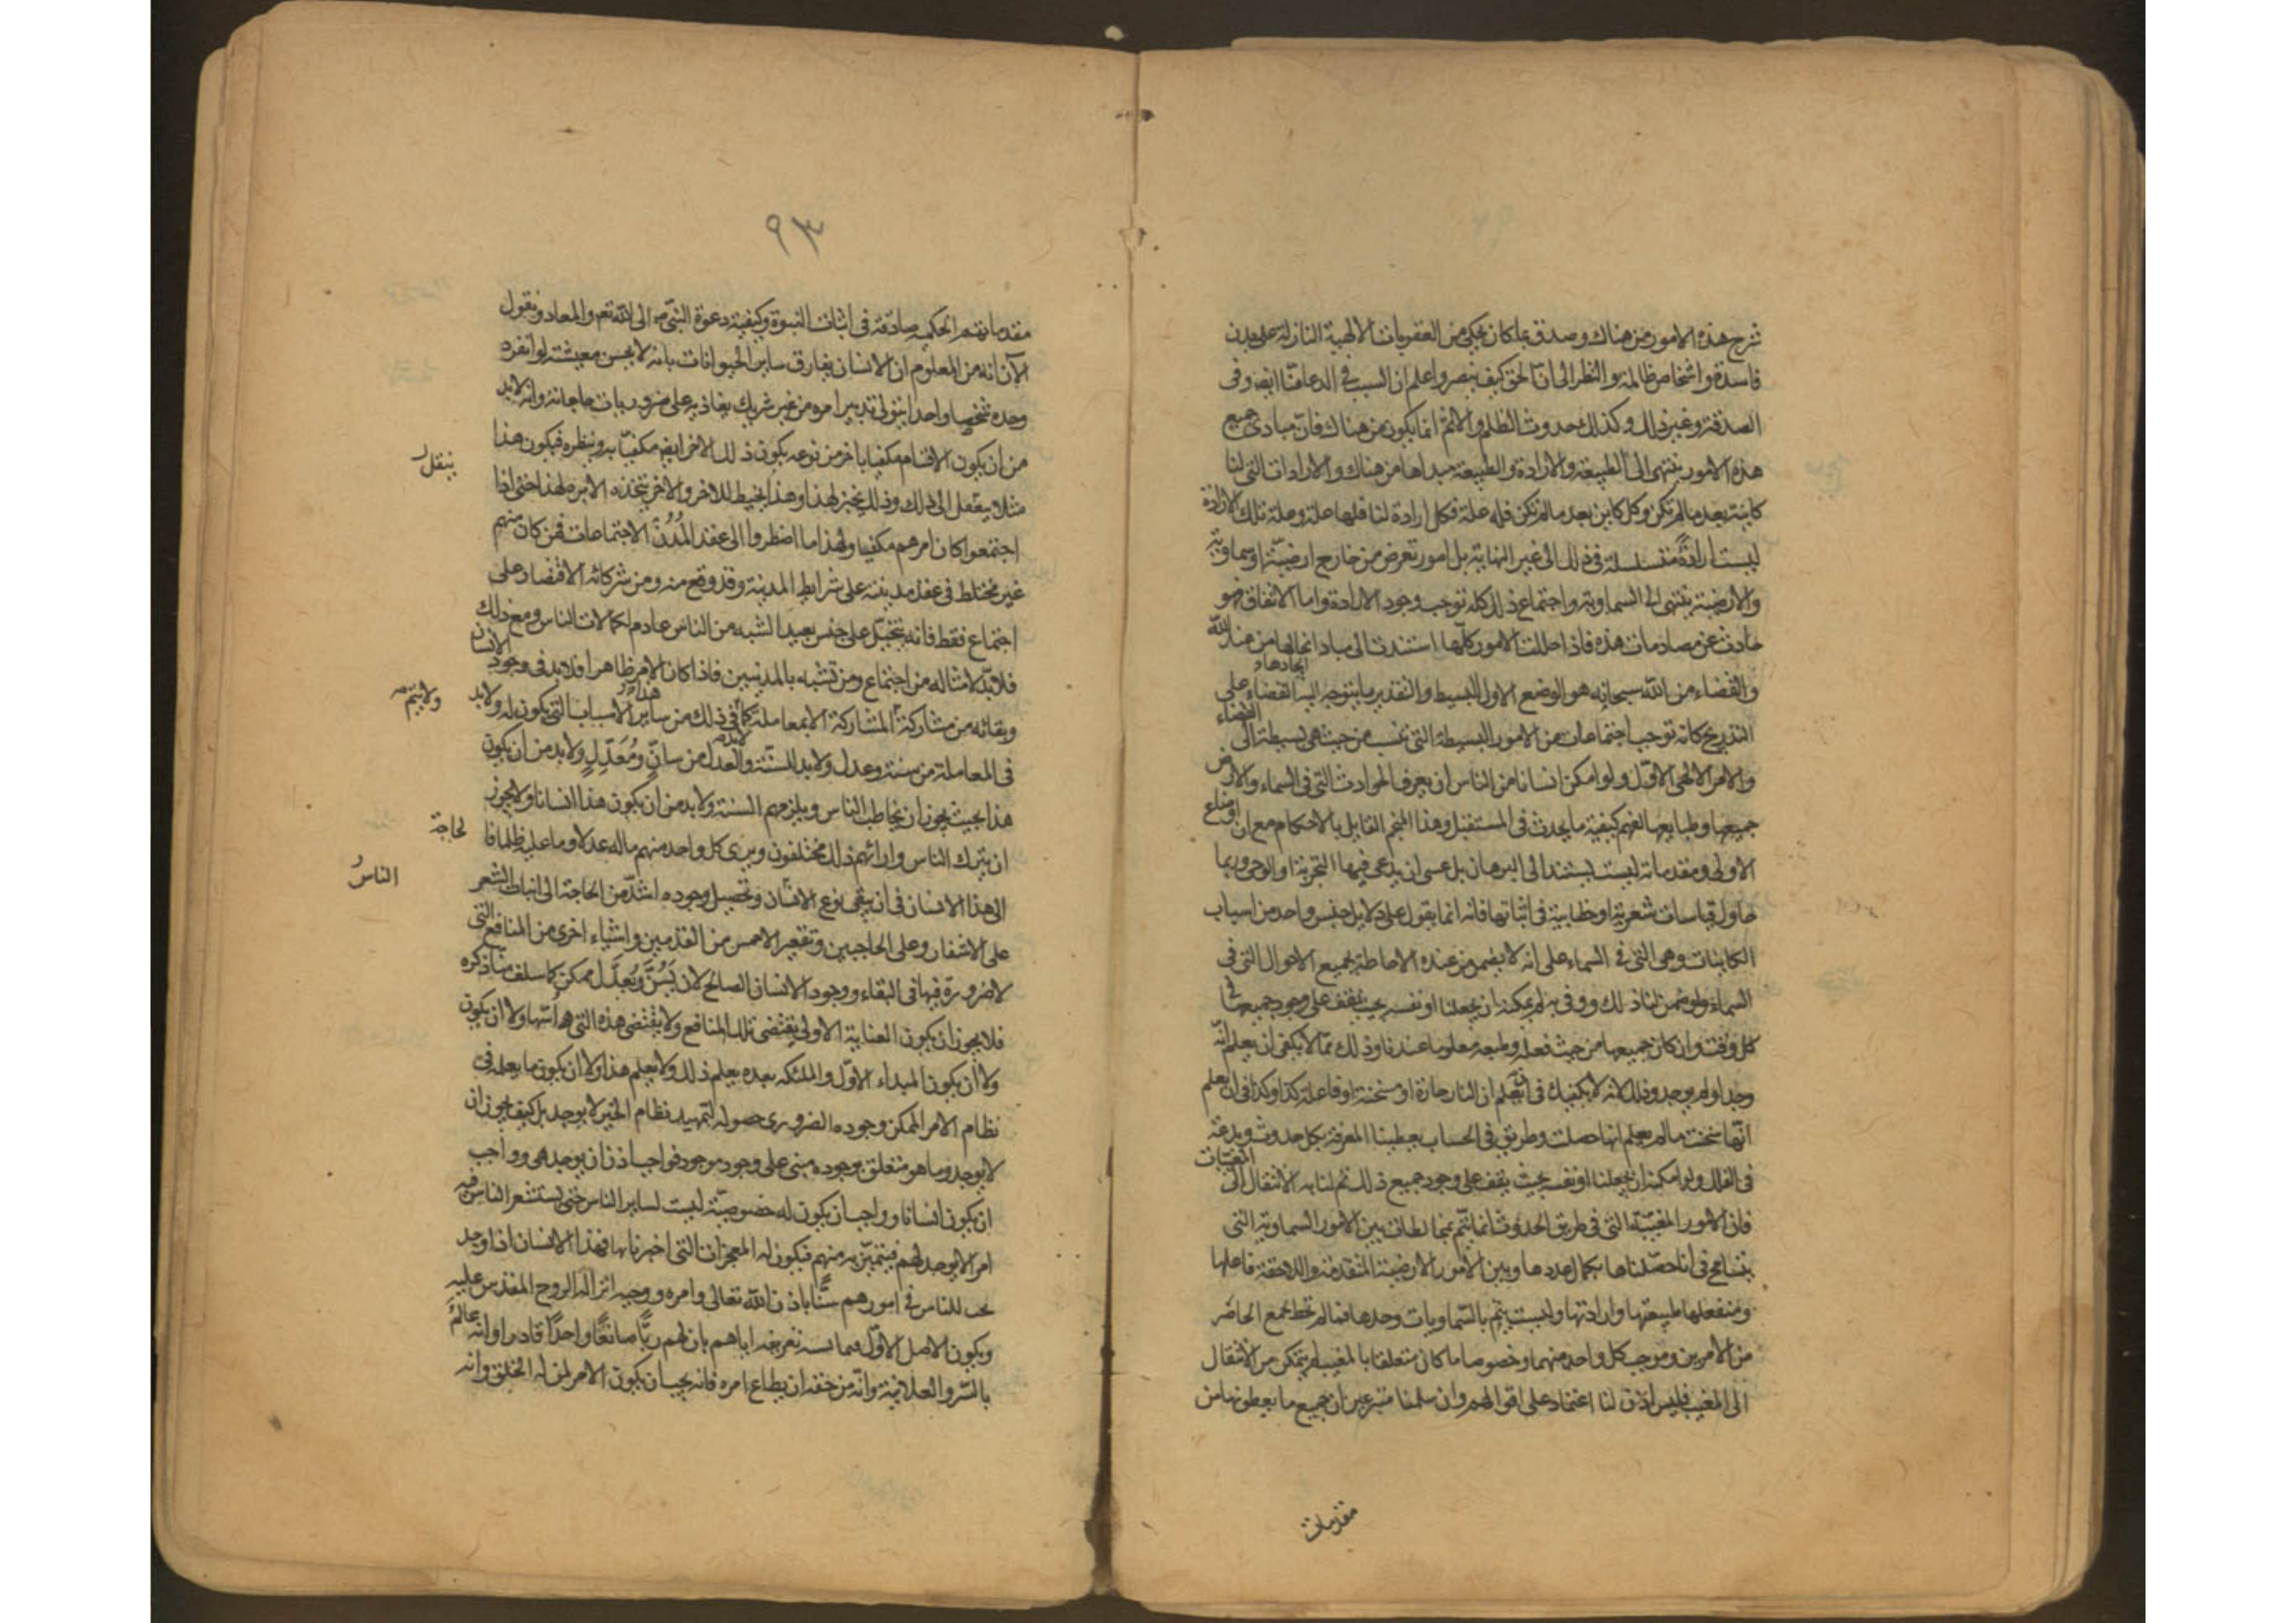 شرح هذه الامور من هناك وصدق بما كان يحكى من العقوبات الالهية النازلة على مدن
فاسدة واشخاص ظالمة والنظر الى ان الحق كيف ينصر واعلم ان السبب فى الدعا منا ايضا وفى
الصدقة وغير ذلك وكذلك حدوث الظلم والاثم انما يكون من هناك فان مبادى جميع
هذه الامور ينتهى الى الطبيعة والارادة والطبيعة مبداها من هناك والارادات التى لنا
كاينة بعد ما لم تكن وكل كاين بعد ما لم تكن فله علة فكل ارادة لنا فلها علة وعلة تلك الارادة
ليست ارادةً متسلسلة فى ذلك الى غير النهاية بل امور تعرض من خارج ارضيّة او سماوية
والارضية ينتهى الى السماوية واجتماع ذلك كله توجب وجود الارادة واما الاتفاق فهو
حادث عن مصادمات هذه فاذا حللت الامور كلّها استندت الى مبادا ايجابها من عند الله
ايجادها
والقضاء من الله سبحانه هو الوضع الاول البسيط والتقدير ما يتوجه اليه القضاء على
التدريج كانه توجب اجتماعات من الامور البسيطة التى تنسب من حيث هى بسيطة الى القضاء
والامر الالهى الاوّل ولو امكن انسانا من الناس ان يعرف الحوادث التى فى السماء والارض
جميعها وطبايعها لفهم كيفية ما يحدث فى المستقبل وهذا المنجم القايل بالاحكام مع ان اوضاع
الاولى ومقدماته ليست يستند الى البرهان بل عسى ان يدعى فيها التجربة او الوحى وربما
حاول قياسات شعرية او خطابية فى اثباتها فانه انما يقول على دلايل جنس واحد من اسباب
الكاينات وهى التى فى السماء على انه لا يضمن من عنده الاحاطة بجميع الاحوال التى فى
السماء ولو ضمن لنا ذلك ووفى به لم يمكنه ان يجعلنا او نفسه بحيث يقف على وجود جميعها فى
كل وقت وان كان جميعها من حيث فعله وطبعه معلوما عندنا وذلك ممّا لا يكفى ان يعلم انّه
وجد او لم يوجد وذلك لانه لا يكفيك فى ان تعلم ان النار حارة او مسخنة او فاعلة كذا وكذا فى ان تعلم
انها سخنت ما لم يعلم انها حصلت وطريق فى الحساب يعطينا المعرفة بكل حدوث وبدعة
فى الفلك ولو امكنه ان يجعلنا او نفسه بحيث يقف على وجود جميع ذلك تم لنا به الانتقال الى المغيبات
فان الامور المغيبة التى فى طريق الحدوث انما يتم بمخالطات بين الامور السماوية التى
يتسامح فى انا حصّلناها بكمال عددها وبين الامور الارضية المتقدمة واللاحقة فاعلها
ومنفعلها طبيعتها وارادتها وليست يتم بالسّماويات وحدها فما لم نحط بجمع الحاضر
من الامرين وموجب كل واحد منهما وخصوصا ما كان متعلقا بالمغيب لم يتمكن من الانتقال
الى المغيب فليس اذن لنا اعتماد على اقوالهم وان سلمنا متبرعين ان جميع ما يعطونها من
مقدمات
٩٣
مقدماتهم الحكمية صادقة فى اثبات النبوة وكيفية دعوة النبىّ الى الله تعم والمعاد ونقول
الآن انه من المعلوم ان الانسان يفارق ساير الحيوانات بانه لا يحسن معيشته لو انفرد
وحده شخصا واحدا يتولى تدبير امره من غير شريك يعاونه على ضروريات حاجاته وانه لابد
من ان يكون الانسان مكفيا باخر من نوعه يكون ذلك الاخر ايضا مكفيّا به وبنظيره فيكون هذا
ينقل
مثلا ينقل الى ذلك وذلك يخبز لهذا وهذا يخيط للاخر والاخر يتخذ الابرة لهذا حتى اذا
اجتمعوا كان امرهم مكفيا ولهذا ما اضطروا الى عقد المُدُن الاجتماعات فمن كان منهم
غير محتاط فى عقد مدينته على شرايط المدينة وقد وقع منه ومن شركائه الاقتصار على
اجتماع فقط فانه يتحيّل على جنس بعيد الشبه من الناس عادم لكمالات الناس ومع ذلك
فلابدّ لامثاله من اجتماع ومن تشبه بالمدنيين فاذا كان الامر ظاهرا فلابد فى وجود الانسان
ولا يتم
وبقائه من مشاركة المشاركة الا بمعاملة كما فى ذلك من ساير الاسباب التى تكون له ولابد
فى المعاملة من سنة وعدل ولابد للسنّة والعدل من سانٍّ ومُعَدِّلٍ ولابد من ان يكون
هذا بحيث يجوز ان يخاطب الناس ويلزمهم السنة ولابد من ان يكون هذا انسانا ولا يجوز
لحاجة
ان يترك الناس وارائهم ذلك مختلفون ويرى كل واحد منهم ماله عدلا وما عليه ظلما فا
الناس
الى هذا الانسان فى ان يبقى نوع الانسان وتحصيل وجوده اشدّ من الحاجة الى انبات الشعر
على الاشفار وعلى الحاجبين وتقعير الاخمس من القدمين واشياء اخرى من المنافع التى
لا ضرورة فيها فى البقاء ووجود الانسان الصالح لان يَسُنَّ ويُعدِّل ممكن كما سلف منا ذكره
فلا يجوز ان يكون العناية الاولى يقتضى تلك المنافع ولا يقتضى هذه التى هى اسّها ولا ان يكون
ولا ان يكون المبداء الاوّل والملئكه بعده يعلم ذلك ولا يعلم هذا ولا ان يكون ما يعلمه فى
نظام الامر الممكن وجوده الضرورى حصوله لتمهيد نظام الخير لا يوجد بل كيف يجوز ان
لا يوجد وما هو متعلق بوجوده مبنى على وجود موجود فواجب اذن ان يوجد نبى وواجب
ان يكون انسانا وواجب ان يكون له خصوصيّة ليست لساير الناس حتى يستشعر الناس فيه
امرا لا يوجد لهم فيتميّز به منهم فيكون له المعجزات التى اخبرنا بها فهذا الانسان اذا وجد
يجب للناس فى امورهم سننًا باذن الله تعالى وامره ووحيه انزاله الروح المقدس عليه
ويكون الاصل الاوّل فيما يسنه تعريفه اياهم بان لهم ربًّا صانعًا واحدًا قادرا وانه عالمٌ
بالسّر والعلانية وانّه من حقه ان يطاع امره فانه يجب ان يكون الامر لمن له الخلق وانه